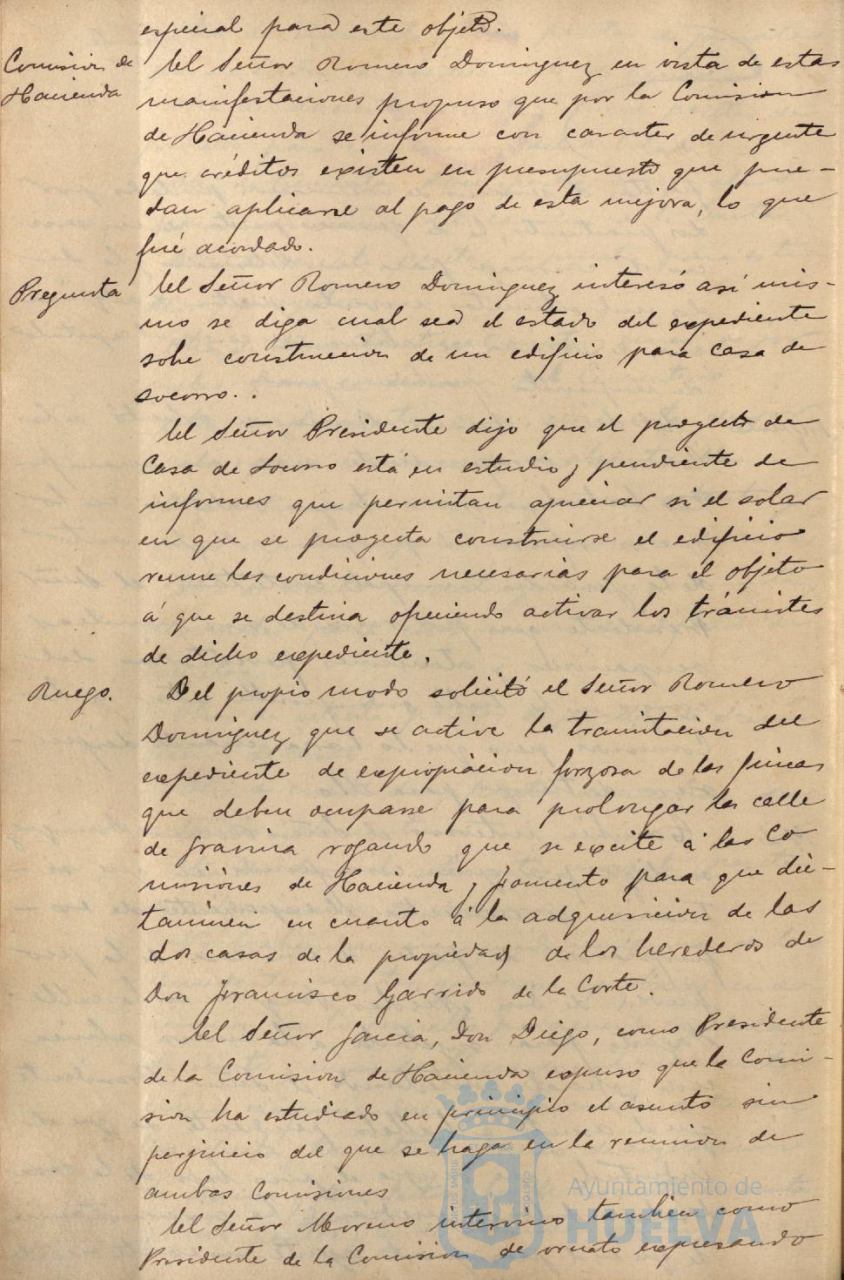 especial para este objeto.
Comision de
Hacienda
El Señor Romero Dominguez en vista de estas
manifestaciones propuso que por la Comision
de Hacienda se informe con caracter de urgente
que créditos existen en presupuesto que pue-
dan aplicarse al pago de esta mejora, lo que
fué acordado.
Pregunta
El Señor Romero Dominguez interesó así mis-
mo se diga cual sea el estado del expediente
sobre construccion de un edificio para casa de
socorro.
El Señor Presidente dijo que el proyecto de
Casa de Socorro está en estudio y pendiente de
informes que permitan apreciar si el solar
en que se proyecta construirse el edificio
reune las condiciones necesarias para el objeto
á que se destina ofreciendo activar los trámites
de dicho expediente.
Ruego.
Del propio modo solicitó el Señor Romero
Dominguez que se active la tramitacion del
expediente de expropiacion forzosa de las fincas
que deben ocuparse para prolongar la calle
de Gravina rogando que se excite á las Co
misiones de Hacienda y Fomento para que dic-
taminen en cuanto á la adquisicion de las
dos casas de la propiedad de los herederos de
Don Francisco Garrido de la Corte.
El Señor Garcia, Don Diego, como Presidente
de la Comision de Hacienda expuso que la Comi-
sion ha estudiado en principio el asunto sin
perjuicio del que se haga en la reunion de
ambas Comisiones
El Señor Moreno intervino tambien como
Presidente de la Comision de ornato expresando
Ayuntamiento de
HUELVA